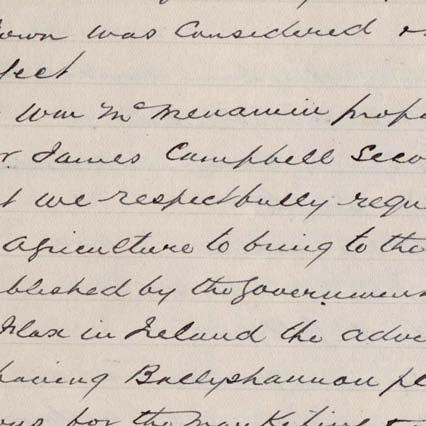 own was considered
fect
Wm McMenamin propo
r. James Campbell Seco
t we respectfully requ
agriculture to bring to the
blished by the Government
Flax in Ireland the adv
having Ballyshannon pl
for the marketing